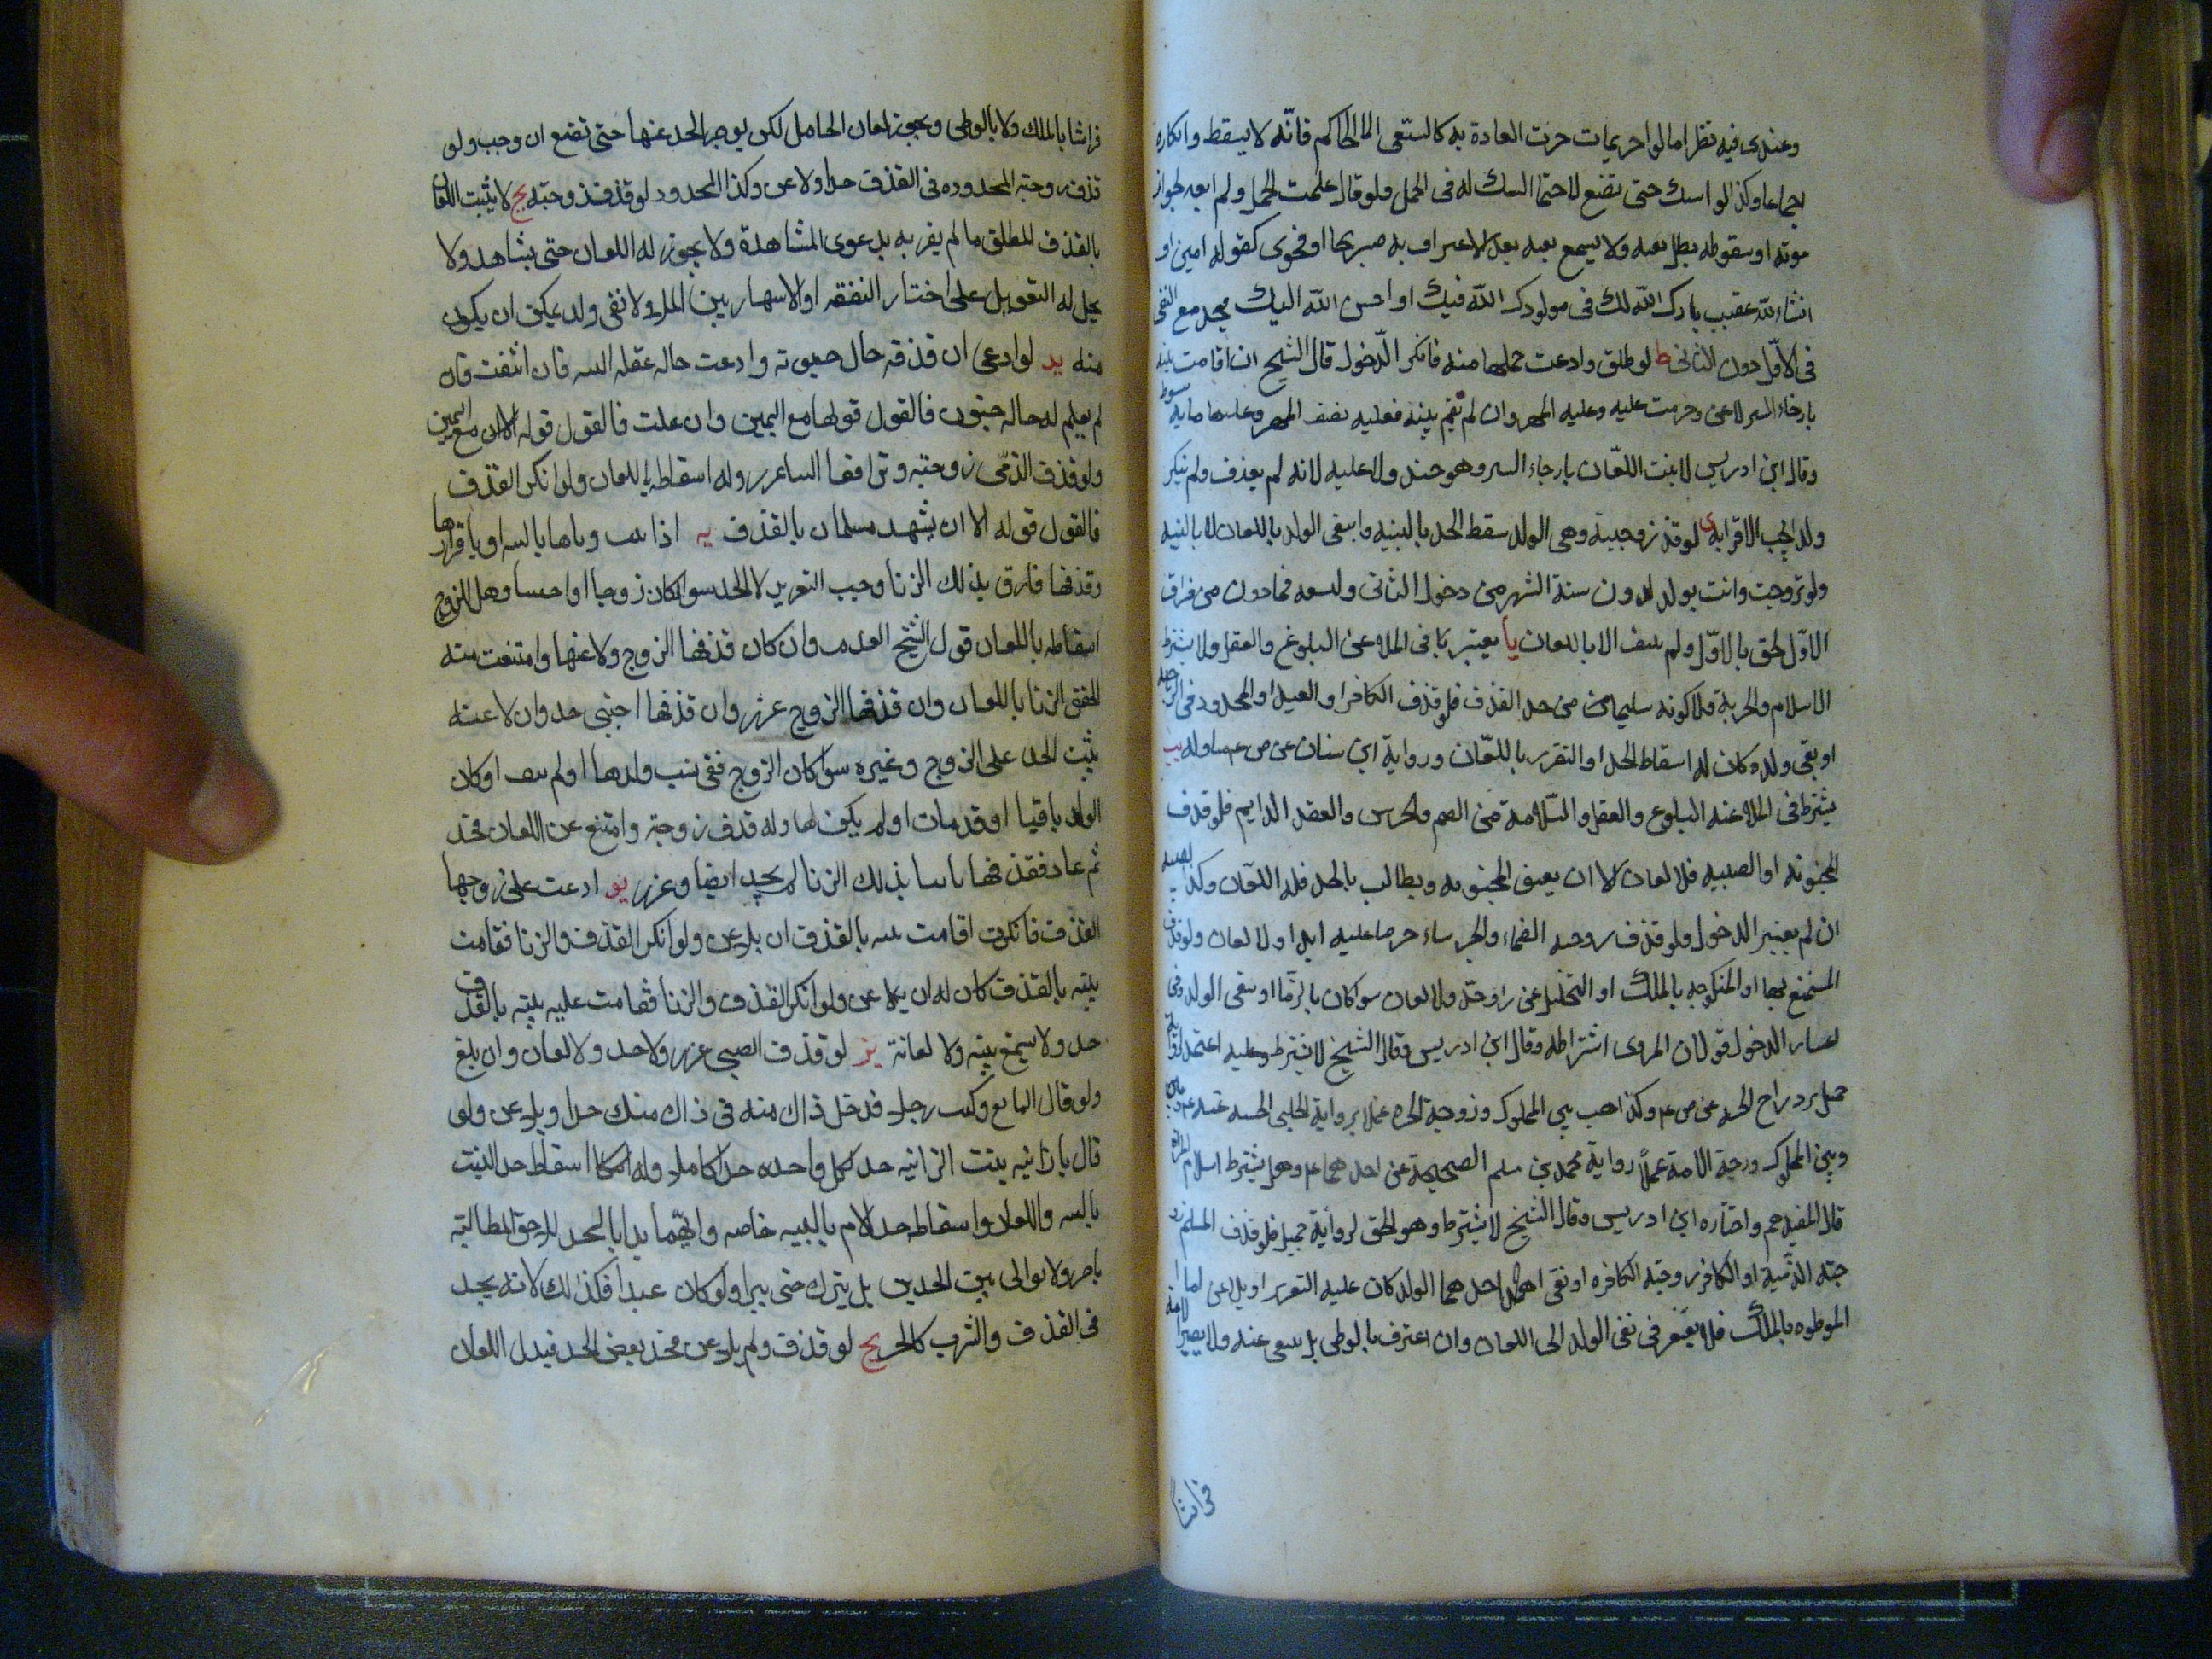 وعندى فيه نظر اما لو اخر بمات جرت العادة به كالسعى الى الحاكم فانّه لا يسقط وانكاره
اجماعا وكذا لو امسك حتى تضع لاحتمال الشك له فى الحمل ولو قال علمت الحمل ولم انفه لجواز
موته او سقوطه بطل نفيه ولا يسمع نفيه بعد الاعتراف به صريحا او فحوى كقوله امين او
انشاء الله عقيب بارك الله لك فى مولودك الله فيك او احسن الله اليك مع النفى
فى الاوّل دون الثانى ط لو طلق وادعت حملها منه فانكر الدّخول قال الشيخ ان اقامت بينه
بارخاء الستر لاعن وحرمت عليه وعليه المهر وان لم تقم بينه فعليه نصف المهر وعليها مايه سوط
وقال ابن ادريس لا يثبت اللعّان بارخاء الستر وهو جيد ولا عليه لانه لم يقذف ولم ينكر
ولدا يجب الاقرار به ى لو قذف زوجته ونفى الولد سقط الحد بالبينه وانتفى الولد باللعان لا بالبينه
ولو تزوجت واتت بولد لدون ستة اشهر من دخول الثانى ولتسعه فما دون من فراق
الاوّل لحق بالاوّل ولم ينتف الا باللعان يا يعتبر فى الملاعن البلوغ والعقل ولا يشترط
الاسلام والحرية ولا كونه سليما من حد القذف فلو قذف الكافر او العبد او المحدود فى الزنا زوجته
او نفى ولده كان له اسقاط الحد او التعزير باللعّان ورواية ابن سنان عن ص ع متاوله يب
يشترط فى الملاعنه البلوع والعقل والسّلامة من الصم والخرس والعقد الدايم فلو قذف
المجنونه او الصبيه فلا لعان الا ان يفيق المجنونه ويطالب بالحد فله اللعّان وكذا الصبيه
ان لم يعتبر الدخول ولو قذف زوجته الصماء والخرساء حرمتا عليه ابدا ولا لعان ولو قذف
المستمتع بها او المنكوحه بالملك او التحليل عزّر او حدّ ولا لعان سوا كان بالزنا او نفى الولد وفى
اعتبار الدخول قولان المروى اشتراطه وقال ابن ادريس وقال الشيخ لا يشترط وعليه اعتمد لرواية
جميل بن دراج الحسنه عن ص ع وكذا يجب بين المملوك وزوجته الحره عملا برواية الحلبى الحسنه عنه ع
وبين المملوك وزوجته الامة عملاً رواية محمد بن مسلم الصحيحة عن احدهما ع وهل يشترط اسلام المراة
قال المفيد نعم واختاره ابن ادريس وقال الشيخ لا يشترط وهو الحق لرواية جميل فلو قذف المسلم زو
جته الذمّية او الكافر زوجته الكافره او نفى احدهما الولد كان عليه التعزير او يلاعن اما
الموطوه بالملك فلا يفتقر فى نفى الولد الى اللعان وان اعترف بالوطى بل ينتفى عنه ولا يصير الامة
فراشا
فراشا بالملك ولا بالوطى ويجوز لعان الحامل لكن يوخر الحد عنها حتى تضع ان وجب ولو
قذف زوجته المحدوده فى القذف حد او لاعن وكذا المحدود لو قذف زوجته يج لا يثبت اللعان
بالقذف المطلق ما لم يقرنه بدعوى المشاهدة ولا يجوز له اللعان حتى يشاهد ولا
يحل له التعويل على اختار الثقة او الاشتهار بين الملا ولا نفى ولد يمكن ان يكون
منه يد لو ادعى ان قذفه حال جنونه وادعت حاله عقله البينه فان انتفت فان
لم يعلم له حاله جنون فالقول قولها مع اليمين وان علمت فالقول قوله الا ان مع اليمين
ولو قذف الذمّى زوجته وترافعا الينا عزر وله اسقاطه باللعان ولو انكر القذف
فالقول قوله الا ان يشهد مسلمان بالقذف يه اذا ثبت زناها بالبينه او باقرارها
وقذفها قاذف بذلك الزنا وجب التعزير لا الحد سوا كان زوجا او اجنبيا وهل للزوج
اسقاطه باللعان قول الشيخ العدم وان كان قذفها الزوج ولاعنها وامتنعت منه
تحقق الزنا باللعان وان قذفها الزوج عزر وان قذفها اجنبى حد وان لاعنته
ثبت الحد على الزوج وغيره سوا كان الزوج نفى نسب ولدها او لم ينف او كان
الولد باقيا او قد مات او لم يكن لها ولد قذف زوجته وامتنع عن اللعان فحد
ثم عاد فقذفها ثانيا بذلك الزنا لم يحد ايضا وعزر يو ادعت على زوجها
القذف فانكرت اقامت بينه بالقذف ان يلاعن ولو انكر القذف والزنا فقامت
بينه بالقذف كان له ان يلاعن ولو انكر القذف والزنا فقامت عليه بينه بالقذف
حد ولا تسمع بينه ولا لعانة يز لو قذف الصبى عزر ولا حد ولا لعان وان بلغ
ولو قال رجل قد دخل ذاك منه فى ذاك منك حد او يلاعن ولو
قال يا زانيه بنت الزانيه حد لكل واحده حدا كاملا وله اسقاط حد البنت
بالبينه واللعان واسقاط حد الام بالبينه خاصه وايّهما بدا بالحد للاخرى المطالبة
باخر ولا يوالى بين الحدين بل يترك حتى يبرا ولو كان عبدا فكذلك لانه يحد
فى القذف والشرب كالحر يح لو قذف ولم يلاعن فحد بعض الحد فبذل اللعان